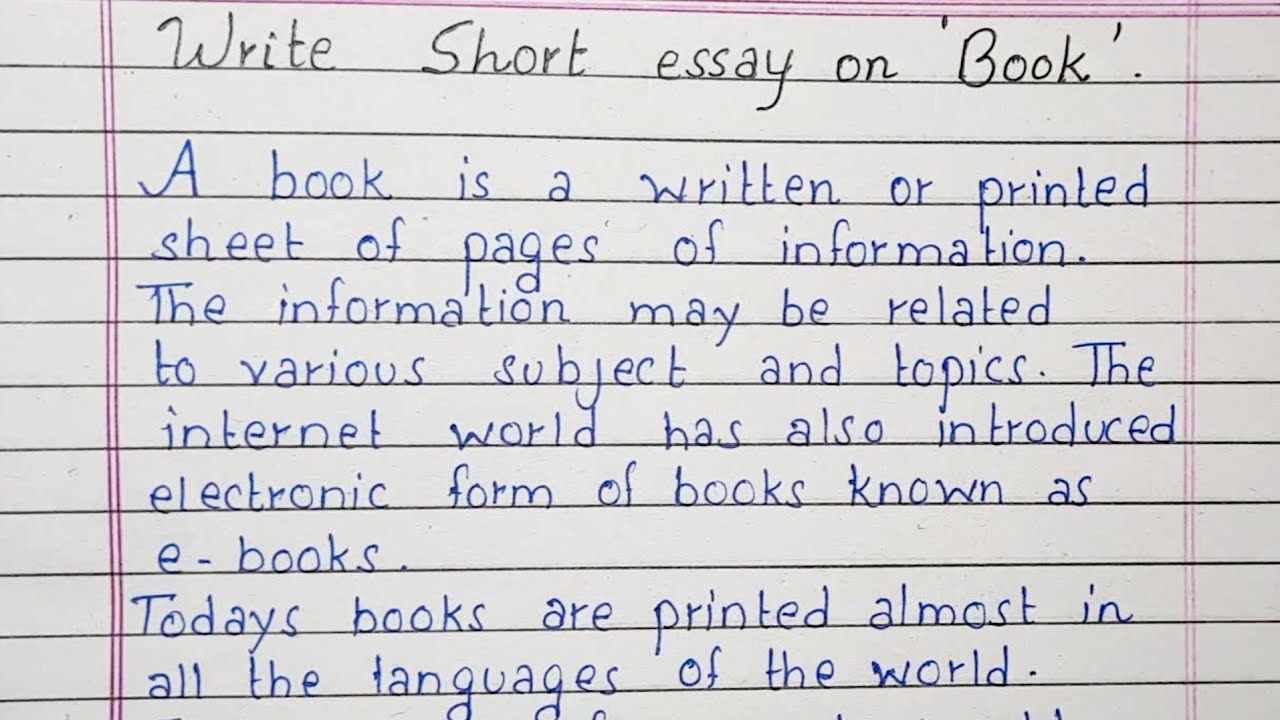 Write Short essay on 'Book'.
A book is a written or printed
sheet of pages of information.
The information may be related
to various subject and topics. The
internet world has also introduced
electronic form of books known as
e-books.
Todays books are printed almost in
all the languages of the world.